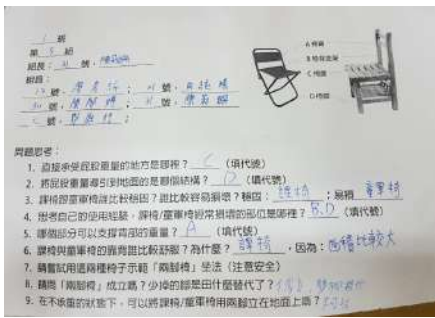 1 班
第 5 組
組長：31 號，陳
組員：
號，；號，
號，；號，
號，；
A 椅背
B 椅背支架
C 椅面
D 椅腳
問題思考：
1. 直接承受屁股重量的地方是哪裡？ C （填代號）
2. 將屁股重量導引到地面的是哪個結構？ D （填代號）
3. 課椅跟童軍椅誰比較穩固？誰比較容易損壞？穩固：課椅；易損 童軍椅
4. 思考自己的使用經驗，課椅/童軍椅經常損壞的部位是哪裡？ B.D （填代號）
5. 哪個部分可以支撐背部的重量？ A （填代號）
6. 課椅與童軍椅的靠背誰比較舒服？為什麼？ 課椅，因為：面積比較大
7. 請嘗試用這兩種椅子示範「兩腳椅」坐法（注意安全）
8. 請問「兩腳椅」成立嗎？少掉的腳是由什麼替代了？
9. 在不承重的狀態下，可以將課椅/童軍椅用兩腳立在地面上嗎？